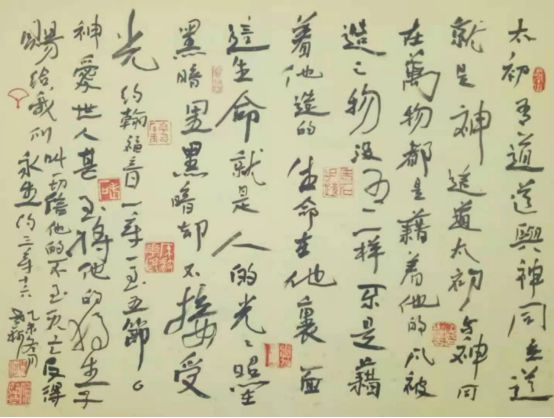 太初有道道與神同在道
就是神這道太初与神同
在萬物都是藉着他的凡被
造之物沒有一样不是藉
着他造的生命在他裏面
這生命就是人的光〻照在
黑暗里黑暗却不接受
光 约翰福音一章一至五節
神愛世人甚至將他的独生子
賜给我们叫一切信他的不至灭亡反得
永生 约三章十六
乙未